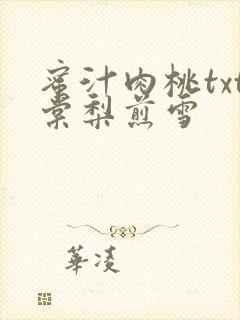 蜜汁肉桃txt
棠梨煎雪
華凌